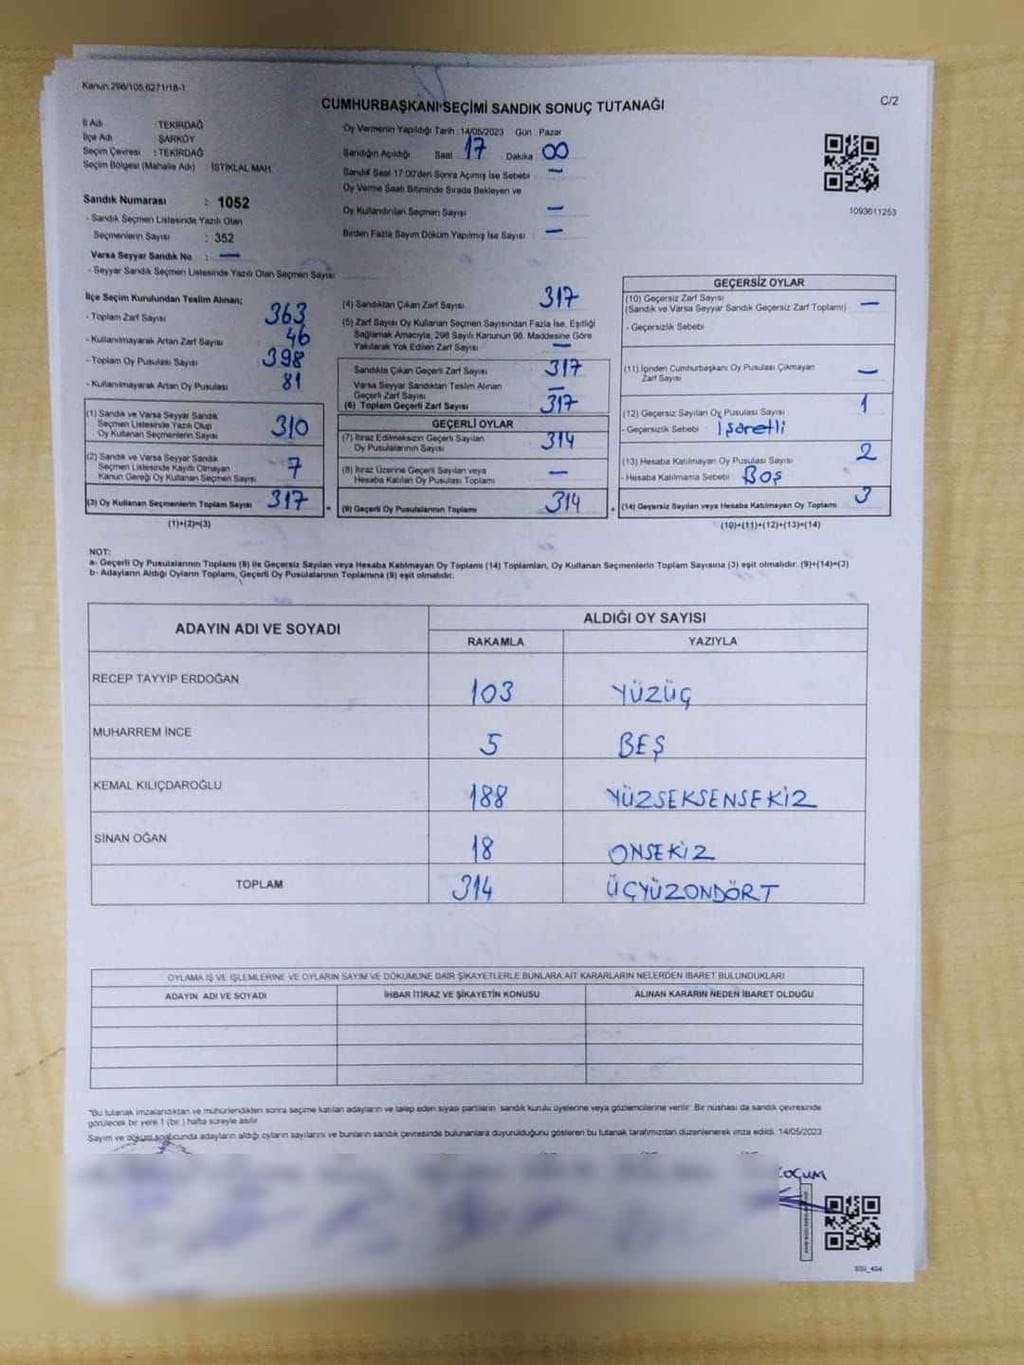 Kanun.298/105,6271/18-1
CUMHURBAŞKANI SEÇİMİ SANDIK SONUÇ TUTANAĞI
C/2
İl Adı : TEKİRDAĞ
İlçe Adı : ŞARKÖY
Seçim Çevresi : TEKİRDAĞ
Seçim Bölgesi (Mahalle Adı) : İSTİKLAL MAH.
Oy Vermenin Yapıldığı Tarih : 14/05/2023 Gün Pazar
Sandığın Açıldığı Saat 17 Dakika 00
Sandık Saat 17:00'den Sonra Açılmış İse Sebebi —
Oy Verme Saati Bitiminde Sırada Bekleyen ve
Oy Kullandırılan Seçmen Sayısı —
Birden Fazla Sayım Döküm Yapılmış İse Sayısı —
1093611253
Sandık Numarası : 1052
- Sandık Seçmen Listesinde Yazılı Olan
Seçmenlerin Sayısı : 352
Varsa Seyyar Sandık No : —
- Seyyar Sandık Seçmen Listesinde Yazılı Olan Seçmen Sayısı
İlçe Seçim Kurulundan Teslim Alınan;
- Toplam Zarf Sayısı 363
- Kullanılmayarak Artan Zarf Sayısı 46
- Toplam Oy Pusulası Sayısı 398
- Kullanılmayarak Artan Oy Pusulası 81
(1) Sandık ve Varsa Seyyar Sandık
Seçmen Listesinde Yazılı Olup
Oy Kullanan Seçmenlerin Sayısı 310
(2) Sandık ve Varsa Seyyar Sandık
Seçmen Listesinde Kayıtlı Olmayan
Kanun Gereği Oy Kullanan Seçmen Sayısı 7
(3) Oy Kullanan Seçmenlerin Toplam Sayısı 317
(1)+(2)=(3)
(4) Sandıktan Çıkan Zarf Sayısı 317
(5) Zarf Sayısı Oy Kullanan Seçmen Sayısından Fazla İse, Eşitliği
Sağlamak Amacıyla, 298 Sayılı Kanunun 98. Maddesine Göre
Yakılarak Yok Edilen Zarf Sayısı —
Sandıkta Çıkan Geçerli Zarf Sayısı 317
Varsa Seyyar Sandıktan Teslim Alınan
Geçerli Zarf Sayısı —
(6) Toplam Geçerli Zarf Sayısı 317
GEÇERLİ OYLAR
(7) İtiraz Edilmeksizin Geçerli Sayılan
Oy Pusulalarının Sayısı 314
(8) İtiraz Üzerine Geçerli Sayılan veya
Hesaba Katılan Oy Pusulası Toplamı —
= (9) Geçerli Oy Pusulalarının Toplamı 314
GEÇERSİZ OYLAR
(10) Geçersiz Zarf Sayısı
(Sandık ve Varsa Seyyar Sandık Geçersiz Zarf Toplamı) —
- Geçersizlik Sebebi
(11) İçinden Cumhurbaşkanı Oy Pusulası Çıkmayan
Zarf Sayısı —
(12) Geçersiz Sayılan Oy Pusulası Sayısı 1
- Geçersizlik Sebebi İşaretli
(13) Hesaba Katılmayan Oy Pusulası Sayısı 2
- Hesaba Katılmama Sebebi Boş
+ (14) Geçersiz Sayılan veya Hesaba Katılmayan Oy Toplamı 3
(10)+(11)+(12)+(13)=(14)
NOT:
a- Geçerli Oy Pusulalarının Toplamı (9) ile Geçersiz Sayılan veya Hesaba Katılmayan Oy Toplamı (14) Toplamları, Oy Kullanan Seçmenlerin Toplam Sayısına (3) eşit olmalıdır. (9)+(14)=(3)
b- Adayların Aldığı Oyların Toplamı, Geçerli Oy Pusulalarının Toplamına (9) eşit olmalıdır.
ADAYIN ADI VE SOYADI
ALDIĞI OY SAYISI
RAKAMLA YAZIYLA
RECEP TAYYİP ERDOĞAN 103 YÜZÜÇ
MUHARREM İNCE 5 BEŞ
KEMAL KILIÇDAROĞLU 188 YÜZSEKSENSEKİZ
SİNAN OĞAN 18 ONSEKİZ
TOPLAM 314 ÜÇYÜZONDÖRT
OYLAMA İŞ VE İŞLEMLERİNE VE OYLARIN SAYIM VE DÖKÜMÜNE DAİR ŞİKAYETLERLE BUNLARA AİT KARARLARIN NELERDEN İBARET BULUNDUKLARI
ADAYIN ADI VE SOYADI İHBAR İTİRAZ VE ŞİKAYETİN KONUSU ALINAN KARARIN NEDEN İBARET OLDUĞU
*Bu tutanak imzalandıktan ve mühürlendikten sonra seçime katılan adayların ve talep eden siyasi partilerin sandık kurulu üyelerine veya gözlemcilerine verilir. Bir nüshası da sandık çevresinde
görülecek bir yere 1 (bir) hafta süreyle asılır.
Sayım ve döküm sonucunda adayların aldığı oyların sayılarını ve bunların sandık çevresinde bulunanlara duyurulduğunu gösteren bu tutanak tarafımızdan düzenlenerek imza edildi. 14/05/2023